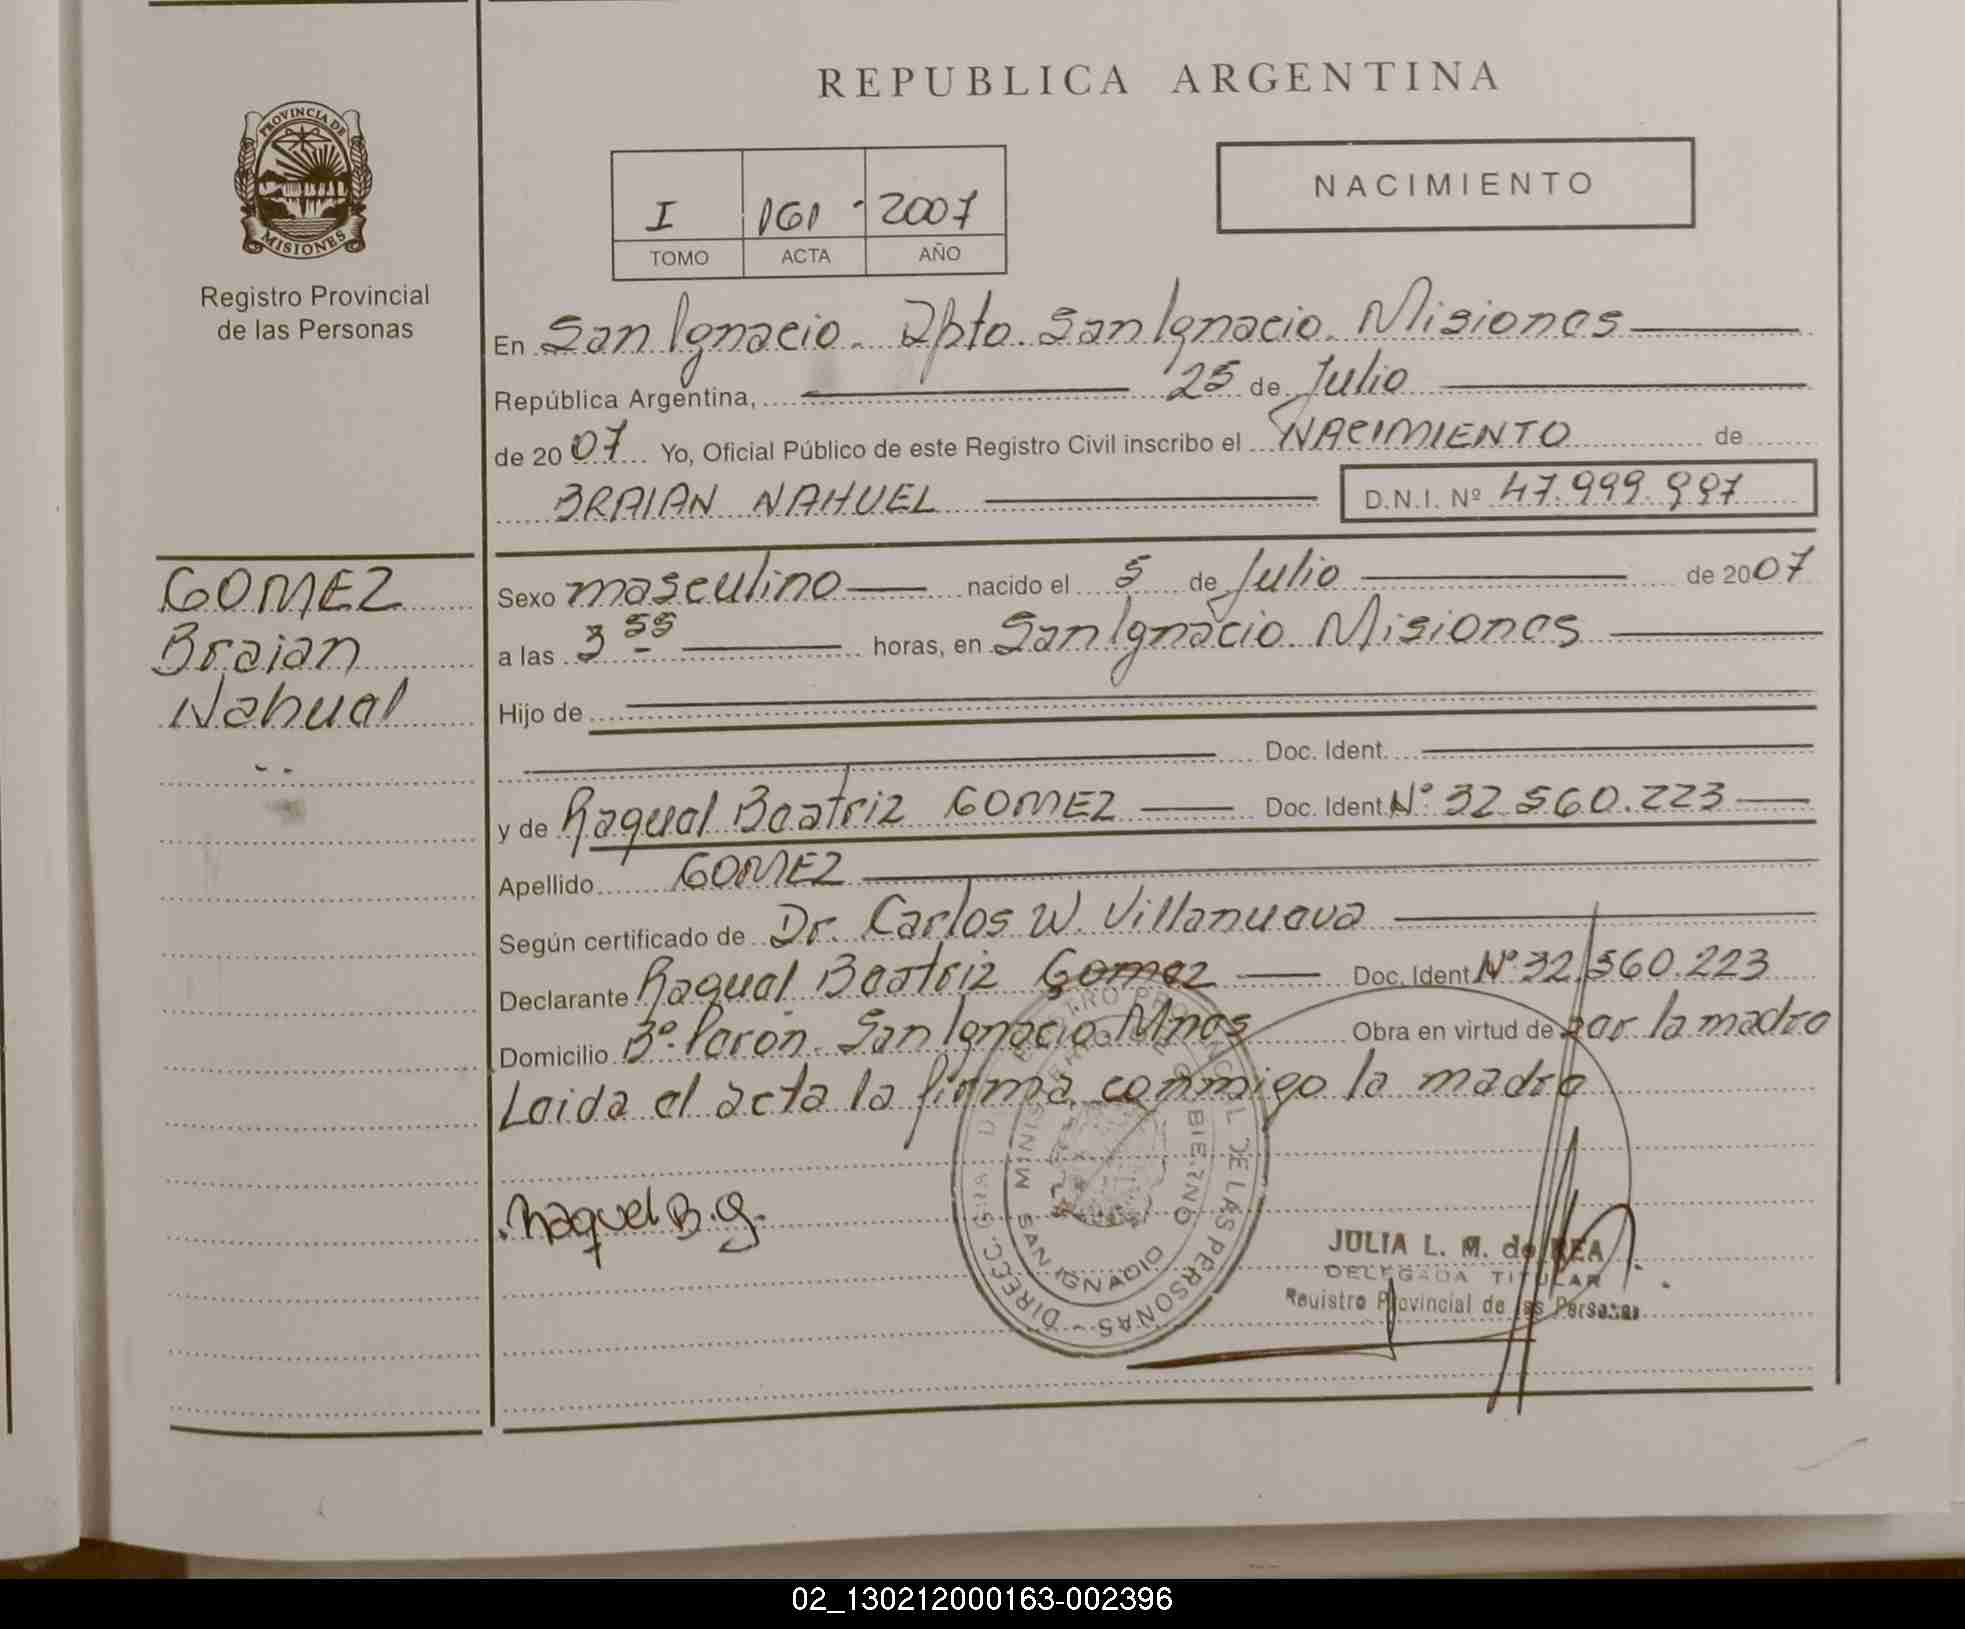 REPUBLICA ARGENTINA
PROVINCIA DE MISIONES
Registro Provincial
de las Personas
NACIMIENTO
I 161 - 2007
TOMO ACTA AÑO
En San Ignacio. Dpto. San Ignacio. Misiones
República Argentina, 25 de Julio
de 2007 Yo, Oficial Público de este Registro Civil inscribo el NACIMIENTO de
BRAIAN NAHUEL D.N.I. Nº 47.999.997
GOMEZ
Braian
Nahuel
Sexo masculino nacido el 5 de Julio de 2007
a las 3 55 horas, en San Ignacio Misiones
Hijo de
Doc. Ident.
y de Raquel Beatriz GOMEZ Doc. Ident. Nº 32.560.223
Apellido GOMEZ
Según certificado de Dr. Carlos W. Villanueva
Declarante Raquel Beatriz Gomez Doc. Ident. Nº 32.560.223
Domicilio Bº Perón. San Ignacio Mnes Obra en virtud de ser la madre
Leida el acta la firma conmigo la madre
Raquel B. G.
DIRECC. GRAL. DEL REGISTRO PROVINCIAL DE LAS PERSONAS -
MINISTERIO DE GOBIERNO
SAN IGNACIO
JULIA L. M. de REA
DELEGADA TITULAR
Registro Provincial de las Personas
02_130212000163-002396